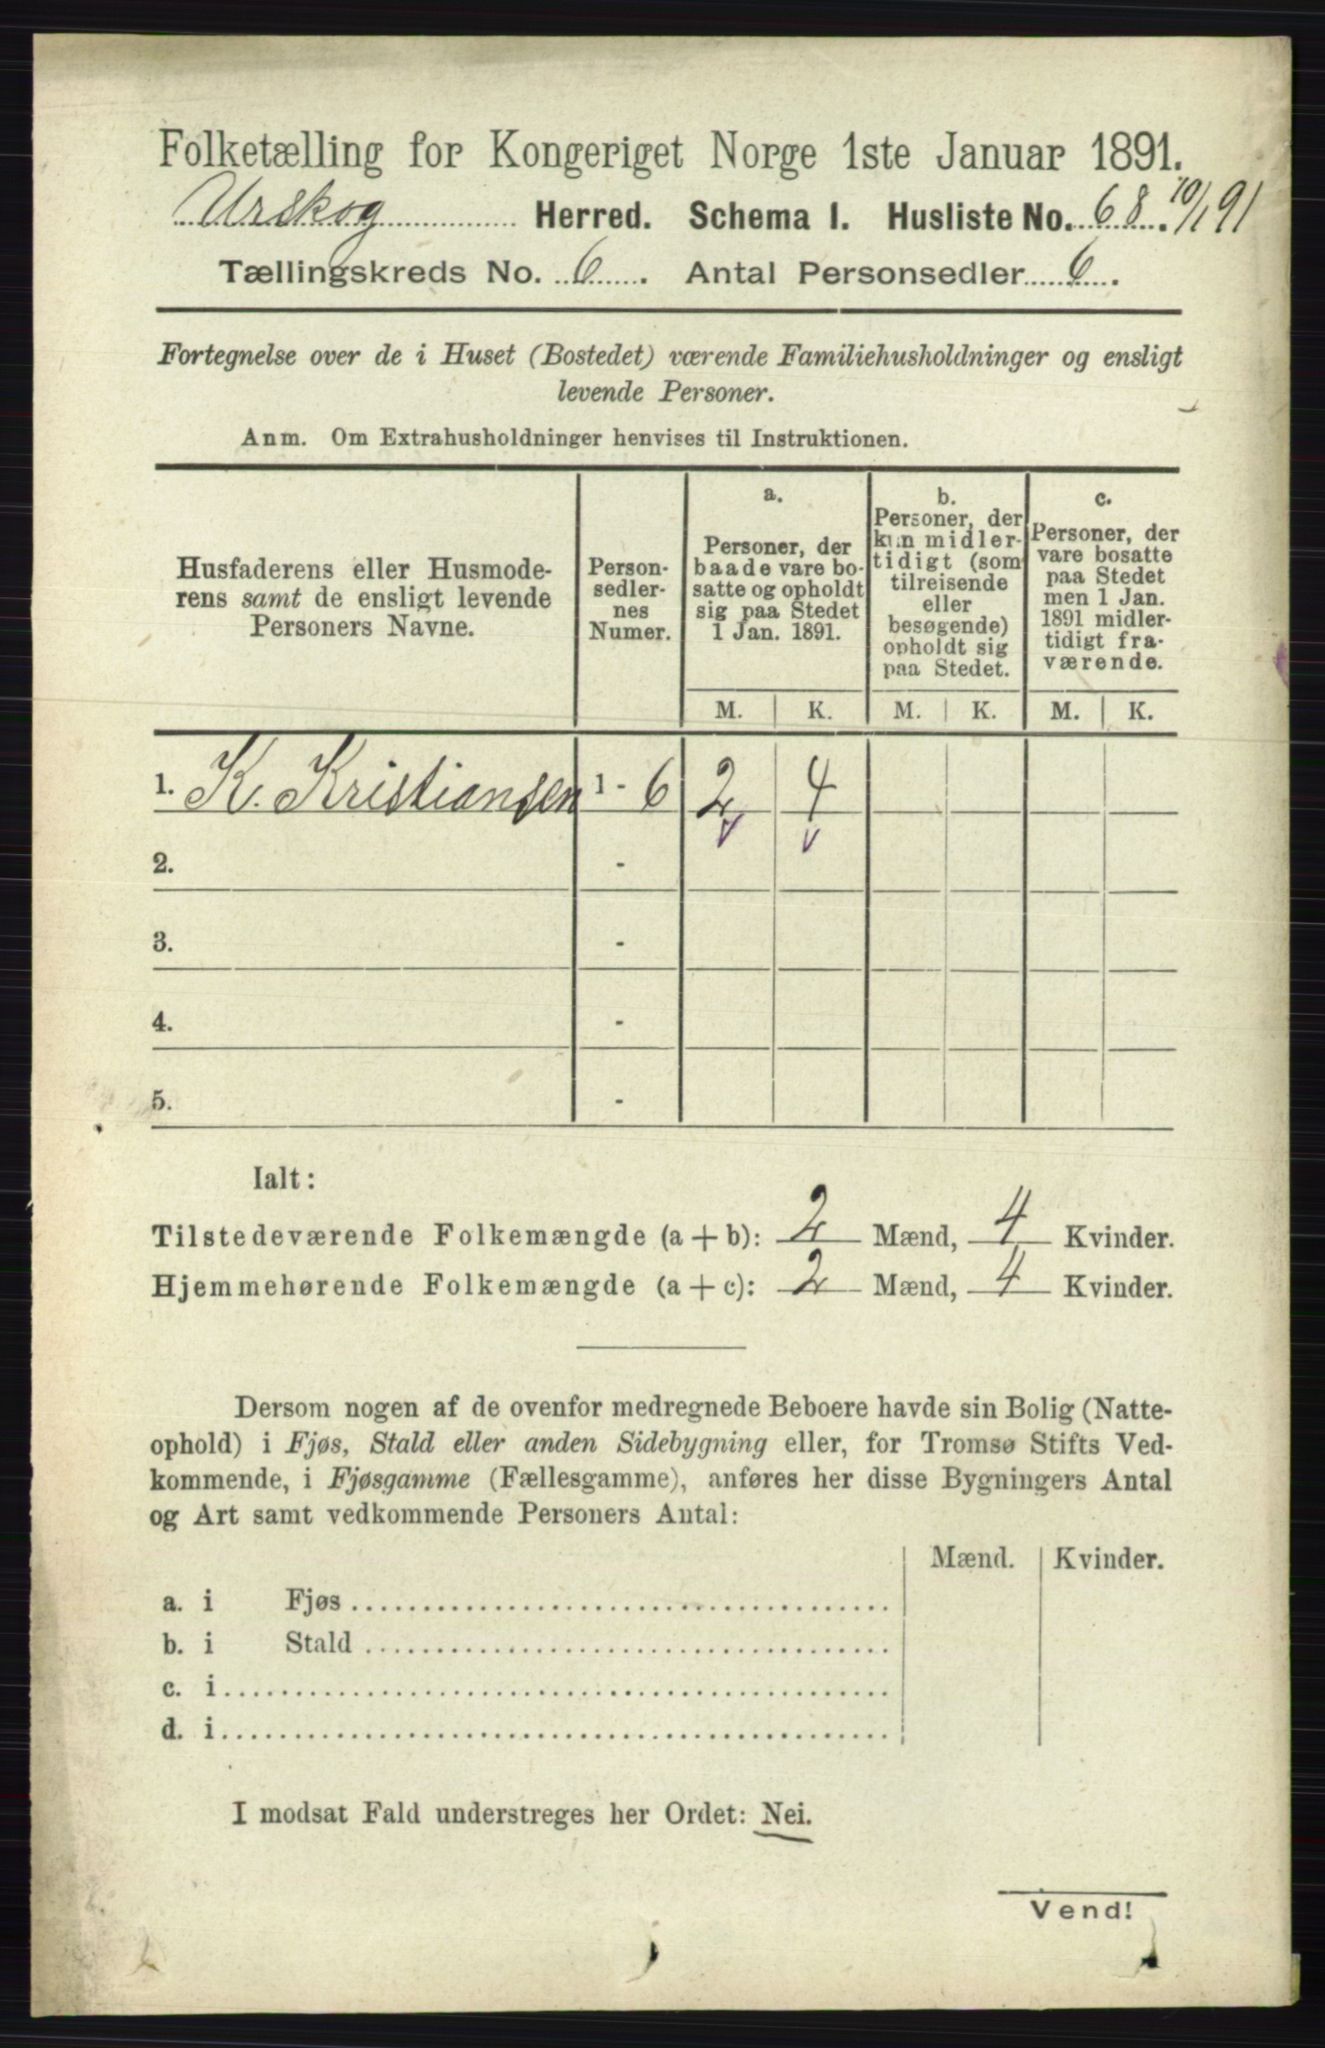 Folketælling for Kongeriget Norge 1ste Januar 1891.
Urskog Herred. Schema 1. Husliste No. 68. 10/1 91
Tællingskreds No. 6. Antal Personsedler 6.
Fortegnelse over de i Huset (Bostedet) værende Familiehusholdninger og ensligt
levende Personer.
Anm. Om Extrahusholdninger henvises til Instruktionen.
Husfaderens eller Husmode-
rens samt de ensligt levende
Personers Navne.
Person-
sedler-
nes
Numer.
a.
Personer, der
baade vare bo-
satte og opholdt
sig paa Stedet
1 Jan. 1891.
b.
Personer, der
kun midler-
tidigt (som
tilreisende
eller
besøgende)
opholdt sig
paa Stedet.
c.
Personer, der
vare bosatte
paa Stedet
men 1 Jan.
1891 midler-
tidigt fra-
værende.
M. K. M. K. M. K.
1. K. Kristiansen 1 - 6 2 4
2. -
3. -
4. -
5. -
Ialt:
Tilstedeværende Folkemængde (a + b): 2 Mænd, 4 Kvinder.
Hjemmehørende Folkemængde (a + c): 2 Mænd, 4 Kvinder.
Dersom nogen af de ovenfor medregnede Beboere havde sin Bolig (Natte-
ophold) i Fjøs, Stald eller anden Sidebygning eller, for Tromsø Stifts Ved-
kommende, i Fjøsgamme (Fællesgamme), anføres her disse Bygningers Antal
og Art samt vedkommende Personers Antal:
Mænd. Kvinder.
a. i Fjøs
b. i Stald
c. i
d. i
I modsat Fald understreges her Ordet: Nei.
Vend!